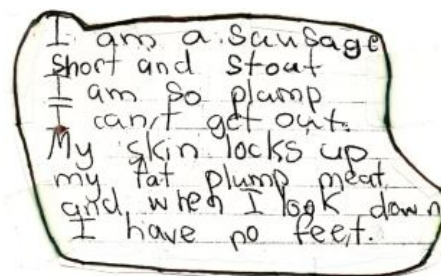 I am a sausage
short and stout
I am so plump
I can't get out.
My skin locks up
my fat plump meat
and when I look down
I have no feet.